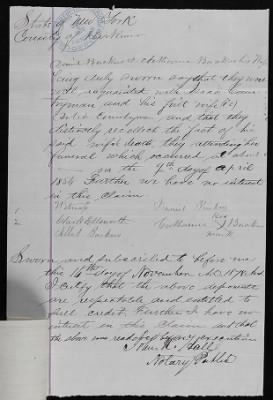 State of New York
County of Herkimer
Daniel Backus & Catharine Backus his wife
being duly sworn say that they were
well acquainted with Isaac Coun-
tryman and his first wife
Countryman and that they
distinctly recollect the fact of his
said wife's death they attending her
funeral which occurred at about
on the 7th day of April
1854 Further we have no interest
in this claim
Witness Daniel Backus
1 her
2 Backus Catharine X Backus
mark
Sworn and subscribed to before me
this 16th day of November A.D.
I certify that the above deponents
are respectable and entitled to
full credit. Further I have no
interest in the claim and that
the above was read before execution
John Hall
Notary Public